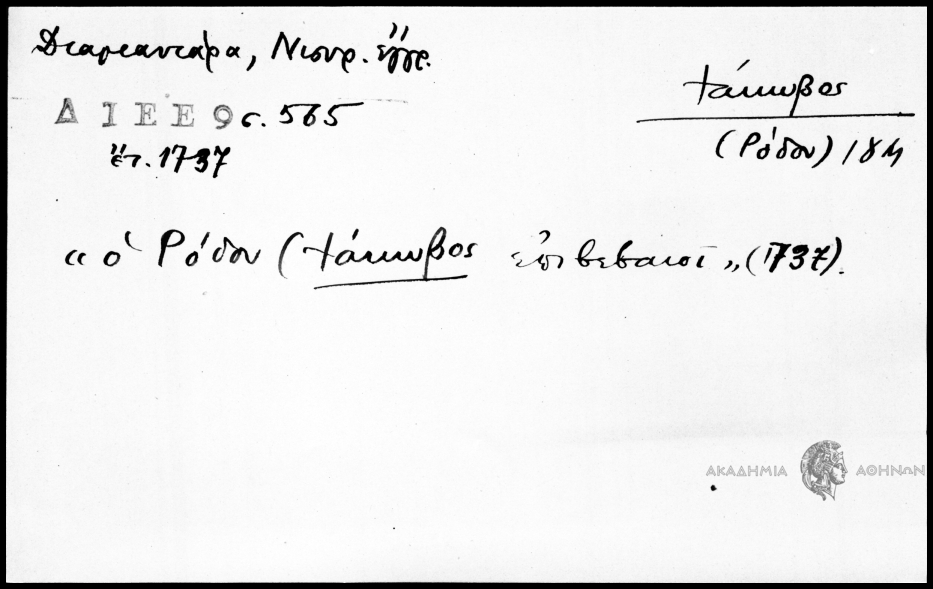 Διαμαντάρα, Νισυρ. ἔγγρ.
Δ Ι Ε Ε 9 σ. 565
ἔτ. 1737
†άκωβος
(Ρόδου) 18Μ
«ὁ Ρόδου (†άκωβος ἐπιβεβαιοῖ» (1737).
ΑΚΑΔΗΜΙΑ ΑΘΗΝΩΝ